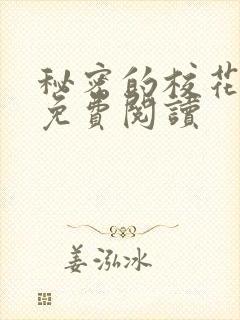 秘密的校花
免費閱讀
姜泓冰